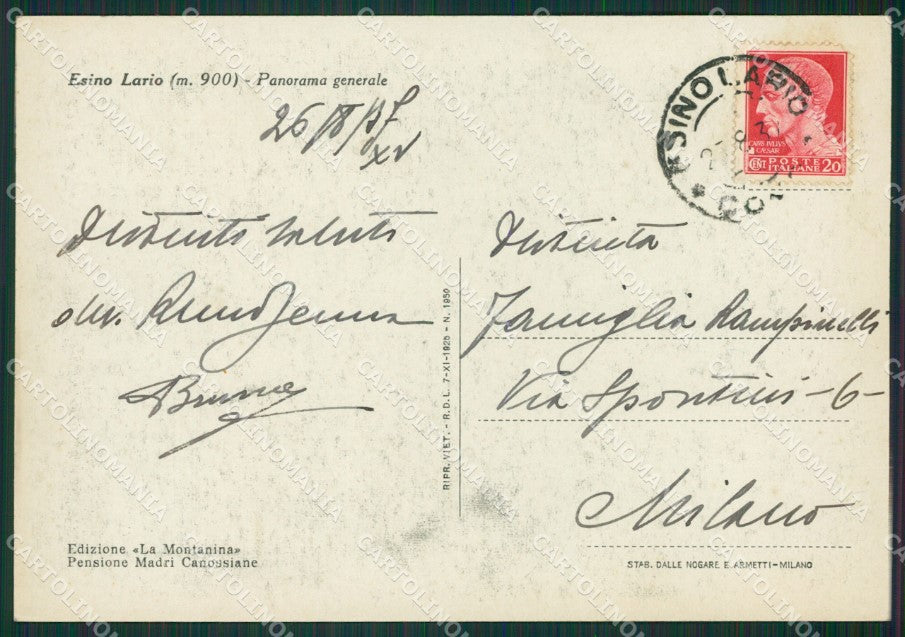 Esino Lario (m. 900) - Panorama generale
26/8/37
XV
Distinti saluti
Bruna
Edizione «La Montanina»
Pensione Madri Canossiane
RIPR. VIET. - R.D.L. 7-XI-1925 - N. 1950
ESINO LARIO
CAIVS IVLIVS
CAESAR
CENT POSTE 20
ITALIANE
Distinta
Famiglia Rampinelli
Via Spontini - 6 -
Milano
STAB. DALLE NOGARE E ARMETTI - MILANO
CARTOLINOMANIA